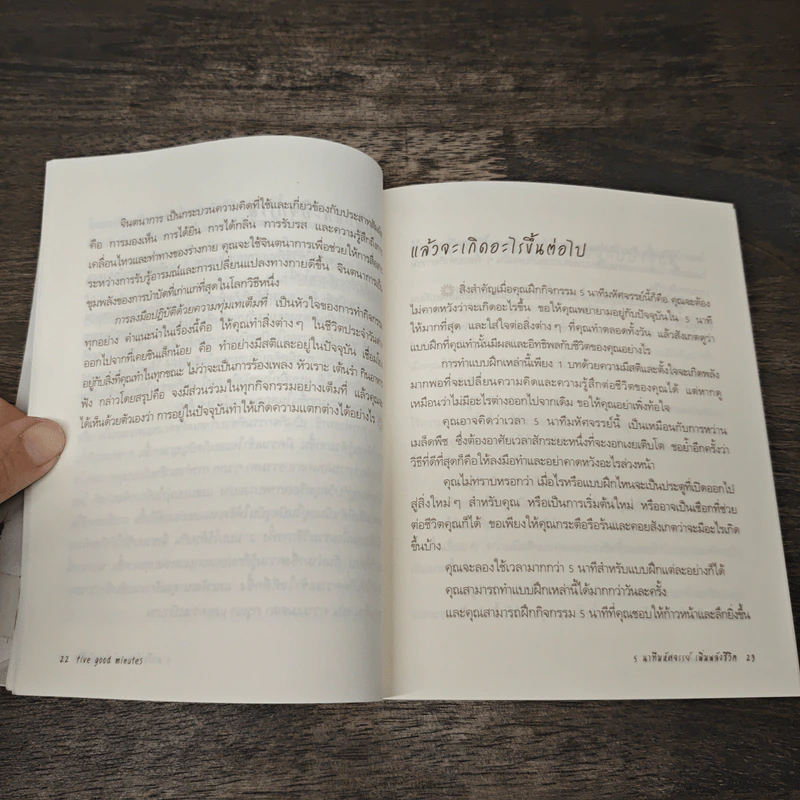 จินตนาการ เป็นกระบวนความคิดที่ใช้และเกี่ยวข้องกับประสาทสัมผัส
คือ การมองเห็น การได้ยิน การได้กลิ่น การรับรส และความรู้สึกถึงการ
เคลื่อนไหวและท่าทางของร่างกาย คุณจะใช้จินตนาการเพื่อช่วยให้การสื่อสาร
ระหว่างการรับรู้อารมณ์และการเปลี่ยนแปลงทางกายดีขึ้น จินตนาการเป็น
ขุมพลังของการบำบัดที่เก่าแก่ที่สุดในโลกวิธีหนึ่ง
การลงมือปฏิบัติด้วยความทุ่มเทเต็มที่ เป็นหัวใจของการทำกิจกรรม
ทุกอย่าง คำแนะนำในเรื่องนี้คือ ให้คุณทำสิ่งต่างๆ ในชีวิตประจำวันด้วย
ออกไปจากที่เคยชินเล็กน้อย คือ ทำอย่างมีสติและอยู่ในปัจจุบัน เชื่อมโยง
อยู่กับสิ่งที่คุณทำในทุกขณะ ไม่ว่าจะเป็นการร้องเพลง หัวเราะ เต้นรำ กินอาหาร
ฟัง กล่าวโดยสรุปคือ จงมีส่วนร่วมในทุกกิจกรรมอย่างเต็มที่ แล้วคุณจะ
ได้เห็นด้วยตัวเองว่า การอยู่ในปัจจุบันทำให้เกิดความแตกต่างได้อย่างไร
22 five good minutes
แล้วจะเกิดอะไรขึ้นต่อไป
สิ่งสำคัญเมื่อคุณฝึกกิจกรรม 5 นาทีมหัศจรรย์นี้ก็คือ คุณจะต้อง
ไม่คาดหวังว่าจะเกิดอะไรขึ้น ขอให้คุณพยายามอยู่กับปัจจุบันใน 5 นาที
ให้มากที่สุด และใส่ใจต่อสิ่งต่างๆ ที่คุณทำตลอดทั้งวัน แล้วสังเกตดูว่า
แบบฝึกที่คุณทำนั้นมีผลและอิทธิพลกับชีวิตของคุณอย่างไร
การทำแบบฝึกเหล่านี้เพียง 1 บทด้วยความมีสติและตั้งใจจะเกิดพลัง
มากพอที่จะเปลี่ยนความคิดและความรู้สึกต่อชีวิตของคุณได้ แต่หากดู
เหมือนว่าไม่มีอะไรต่างออกไปจากเดิม ขอให้คุณอย่าเพิ่งท้อใจ
คุณอาจคิดว่าเวลา 5 นาทีมหัศจรรย์นี้ เป็นเหมือนกับการหว่าน
เมล็ดพืช ซึ่งต้องอาศัยเวลาสักระยะหนึ่งที่จะงอกเงยเติบโต ขอย้ำอีกครั้งว่า
วิธีที่ดีที่สุดก็คือให้ลงมือทำและอย่าคาดหวังอะไรล่วงหน้า
คุณไม่ทราบหรอกว่า เมื่อไรหรือแบบฝึกไหนจะเป็นประตูที่เปิดออกไป
สู่สิ่งใหม่ๆ สำหรับคุณ หรือเป็นการเริ่มต้นใหม่ หรืออาจเป็นเชือกที่ช่วย
ต่อชีวิตคุณก็ได้ ขอเพียงให้คุณกระตือรือร้นและคอยสังเกตว่าจะมีอะไรเกิด
ขึ้นบ้าง
คุณจะลองใช้เวลามากกว่า 5 นาทีสำหรับแบบฝึกแต่ละอย่างก็ได้
คุณสามารถทำแบบฝึกเหล่านี้ได้มากกว่าวันละครั้ง
และคุณสามารถฝึกกิจกรรม 5 นาทีที่คุณชอบให้ก้าวหน้าและลึกยิ่งขึ้น
5 นาทีมหัศจรรย์ เพิ่มพลังชีวิต 23